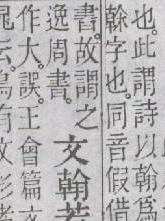 也此謂詩以翰爲
榦字也同音假借
書故謂之文翰若
逸周書
作大誤王會篇文